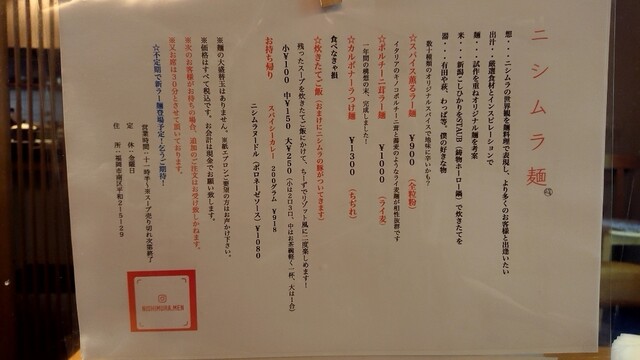 ニシムラ麺
想・・・ニシムラの世界観を麺料理で表現し、より多くのお客様と出逢いたい
出汁・・厳選食材とインスピレーションで
麺・・・試作を重ねオリジナル麺を考案
米・・・新潟こしひかりをSTAUB（鋳物ホーロー鍋）で炊きたてを
器・・・有田や萩、わっぱ等、僕の好きな物
数十種類のオリジナルスパイスで地味に辛いかも？
☆スパイス薫るラー麺 ￥900 （全粒粉）
イタリアのキノコポルチーニ茸と蕎麦のようなライ麦麺が相性抜群です
☆ポルチーニ茸ラー麺 ￥1000 （ライ麦）
一年間の構想の末、完成しました！
☆カルボナーラつけ麺 ￥1300 （ちぢれ）
食べなきゃ損
☆炊きたてご飯（おまけにニシムラの豚がついてきます）
残ったスープを炊きたてご飯にかけて、ちーずでリゾット風に二度楽しめます！
小￥100 中￥150 大￥250（小は2口3口、中はお茶碗軽く一杯、大は1合）
お持ち帰り
スパイシーカレー 200グラム ￥918
ニシムラヌードル（ボロネーゼソース）￥1080
※麺の大盛替玉はありません。※紙エプロンご要望の方はお声かけ下さい。
※価格はすべて税込です。お会計は現金でお願い致します。
※次のお客様がお待ちの場合、追加のご注文はお受け致しかねます。
※又お席は30分とさせて頂いております。
☆不定期で新ラー麺登場予定！乞うご期待！
営業時間：十一時半〜※スープ売り切れ次第終了
定 休：金曜日
住 所：福岡市南区平和2-5-129
NISHIMURA.MEN